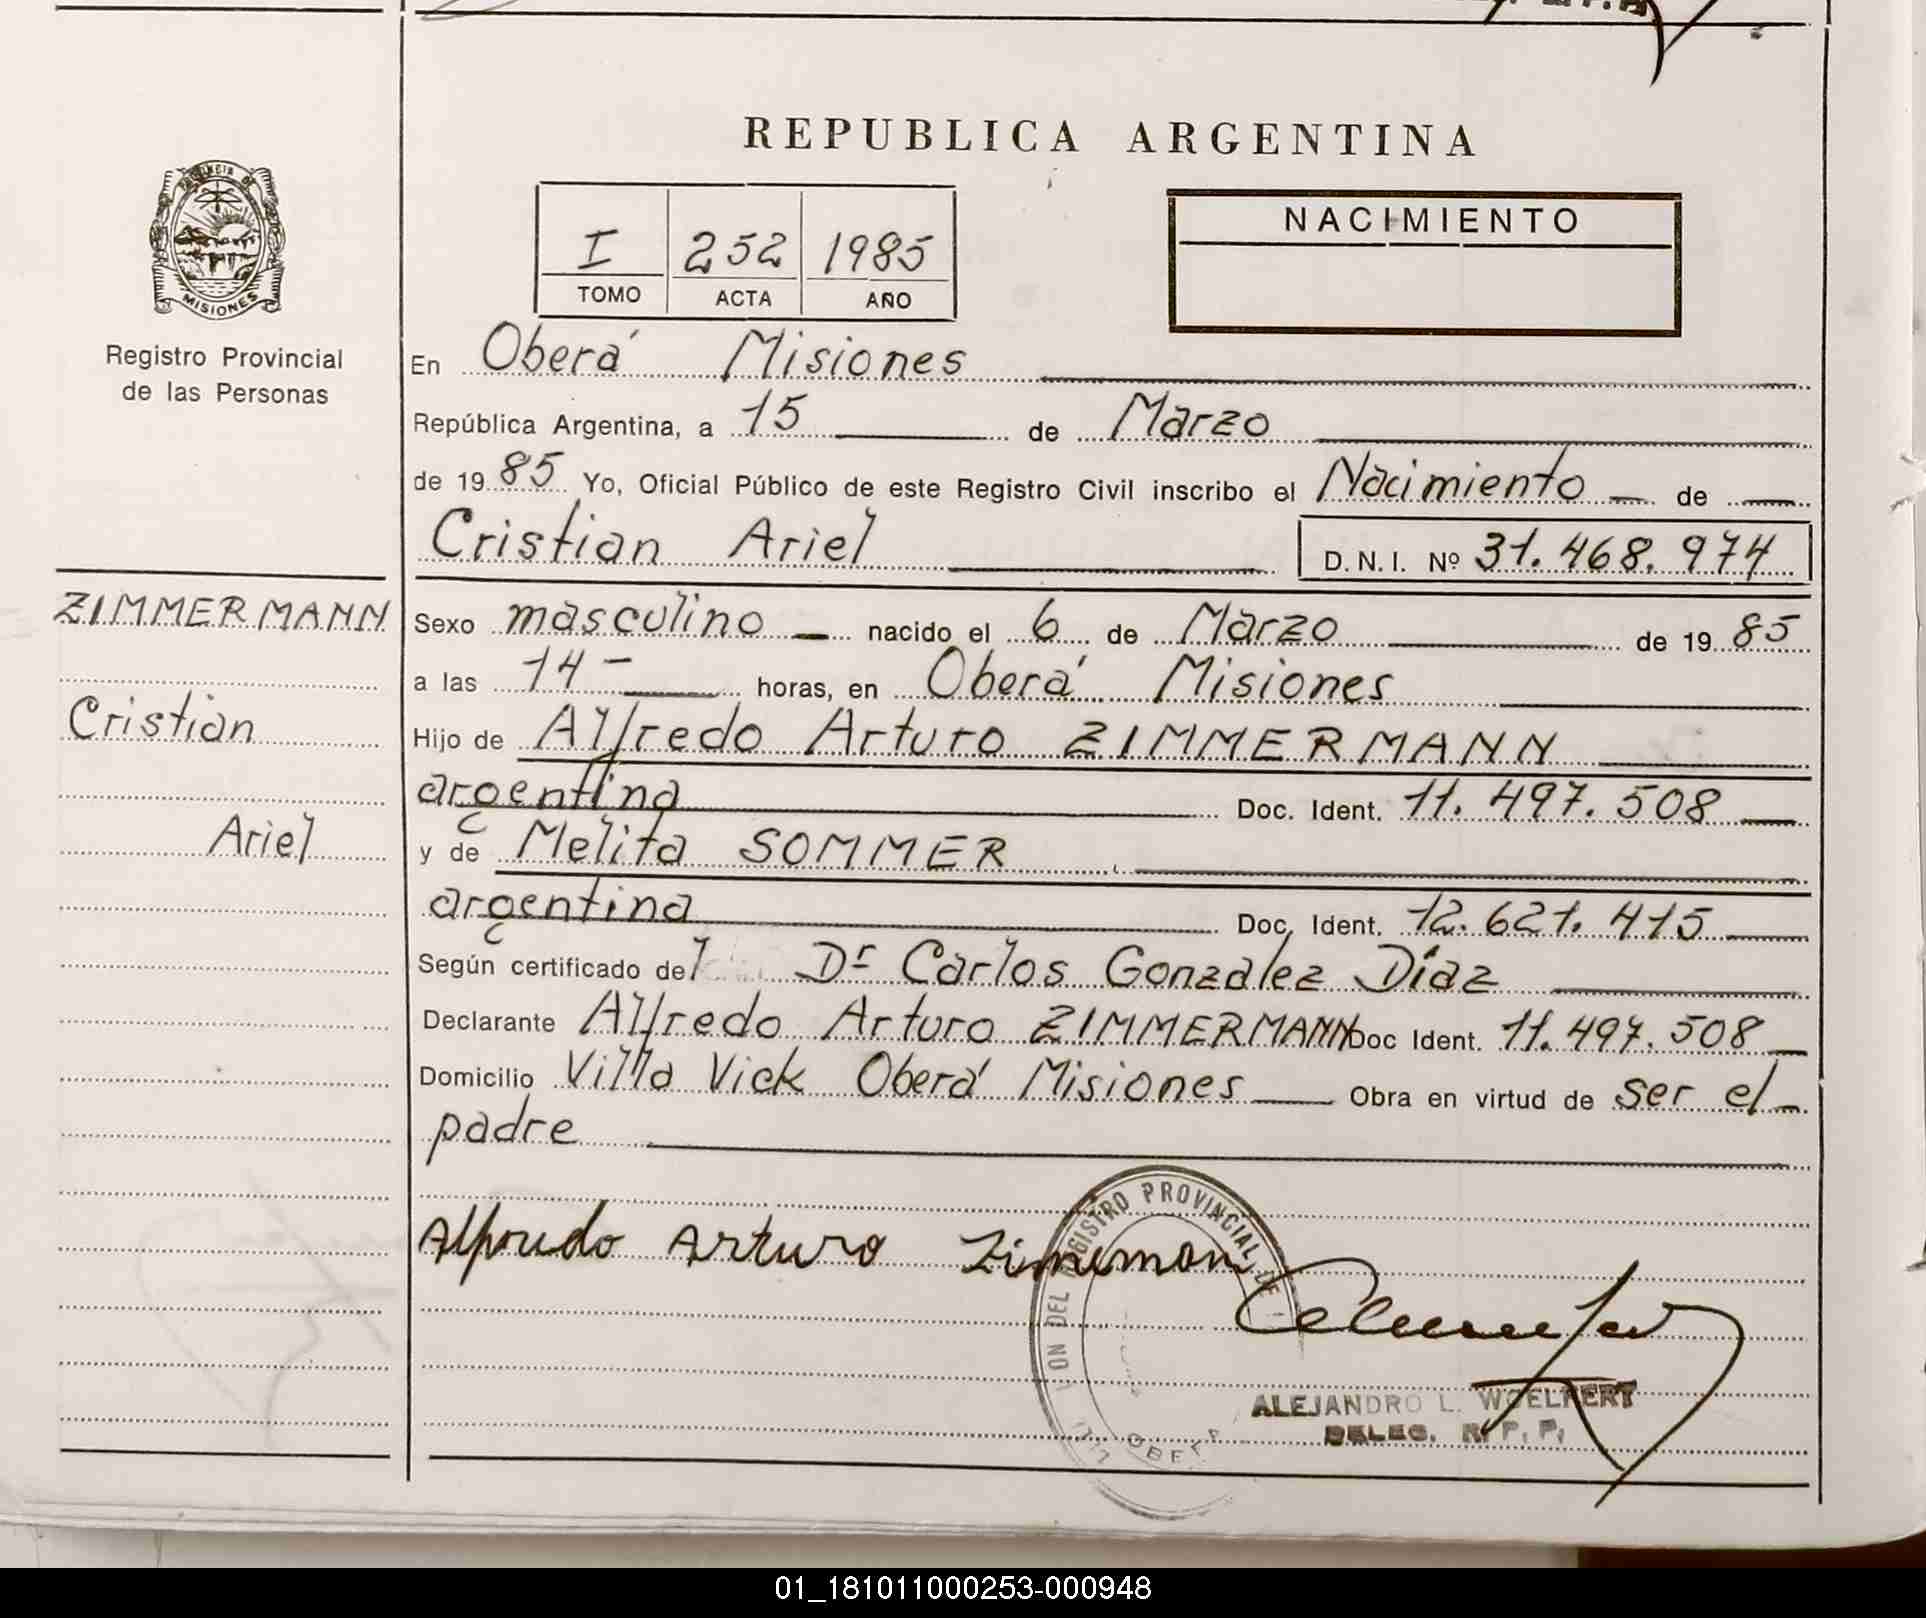 REPUBLICA ARGENTINA
PROVINCIA DE
MISIONES
Registro Provincial
de las Personas
I 252 1985
TOMO ACTA AÑO
NACIMIENTO
En Oberá Misiones
República Argentina, a 15 de Marzo
de 1985 Yo, Oficial Público de este Registro Civil inscribo el Nacimiento de
Cristian Ariel D.N.I. Nº 31.468.974
ZIMMERMANN
Cristian
Ariel
Sexo masculino nacido el 6 de Marzo de 1985
a las 14 - horas, en Oberá Misiones
Hijo de Alfredo Arturo ZIMMERMANN
argentina Doc. Ident. 11.497.508
y de Melita SOMMER
argentina Doc. Ident. 12.621.415
Según certificado del Dr Carlos Gonzalez Díaz
Declarante Alfredo Arturo ZIMMERMANN Doc Ident. 11.497.508
Domicilio Villa Vick Oberá Misiones Obra en virtud de ser el
padre
Alfredo Arturo
REGISTRO PROVINCIAL DE
ALEJANDRO L. WOELFERT
DELEG. R. P. P.
01_181011000253-000948